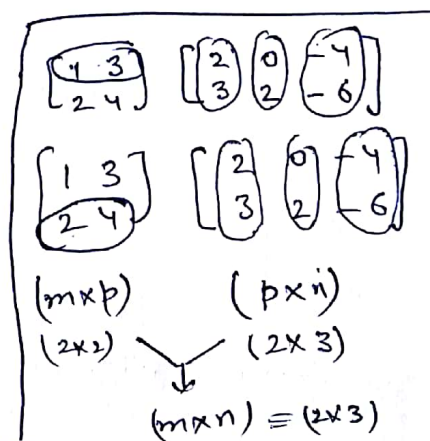 [1 3 [2 0 -4
2 4] 3 2 -6]
[1 3 [2 0 -4
2 4] 3 2 -6]
(m×p) (p×n)
(2×2) (2×3)
(m×n) = (2×3)